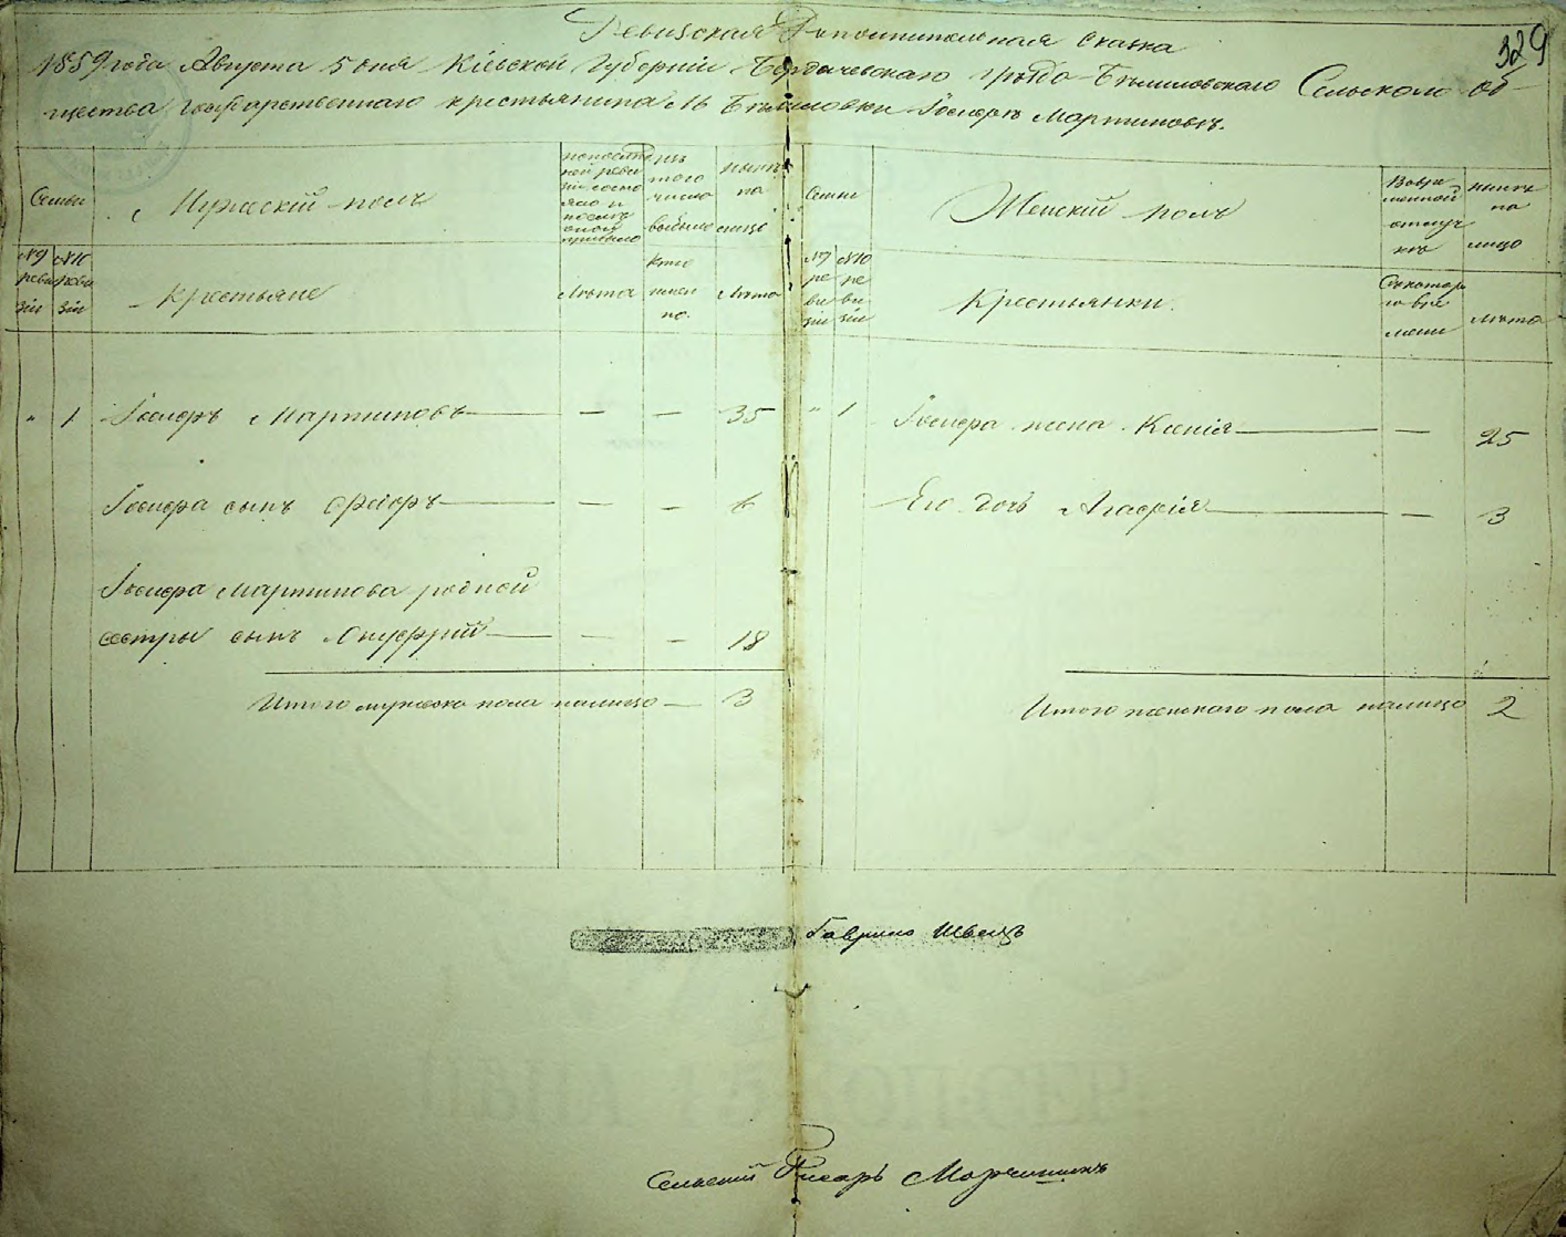 329
Ревизская Дополнительная Сказка
1859 года Августа 5 дня Кіевской Губерніи Бердичевскаго уѣзда Бѣлиловскаго Сельскаго об-
щества Государственнаго крестьянина М. Бѣлиловки Іосифъ Мартиновъ.
Семьи
Мужескій полъ
изъ того числа выбыло
нынѣ на лицо
Семьи
Женскій полъ
Во временной отлучкѣ
нынѣ на лицо
№ 9 ревизіи
№ 10 ревизіи
Крестьяне
Лѣта
Лѣта
№ 9 ревизіи
№ 10 ревизіи
Крестьянки.
Съ котораго времени
Лѣта
" 1 Іосифъ Мартиновъ — — — 35
" 1 Іосифа жена Ксенія — — 25
Іосифа сынъ — — — 6
Его дочь Агафія — — 3
Іосифа Мартинова родной
сестры сынъ Онуфрій — — — 18
Итого мужеска пола налицо — 3
Итого женскаго пола налицо 2
Гаврило Швецъ
Сельскій Писарь